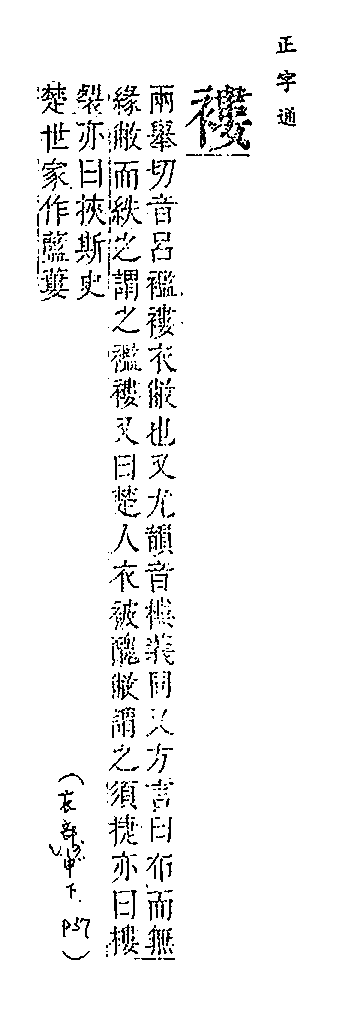 正字通
褸
兩舉切音呂襤褸衣敝也又尤韻音樓義同又方言曰布而無
緣敝而紩之謂之襤褸又曰楚人衣被醜敝謂之須捷亦曰摟
裂亦曰挾斯史
楚世家作藍蔞
(衣部 申下 P57)